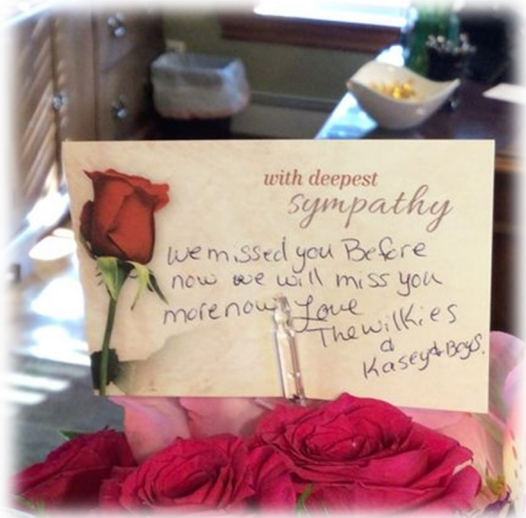 with deepest
sympathy
we missed you Before
now we will miss you
more now Love
The Wilkies
&
Kasey & Boys.